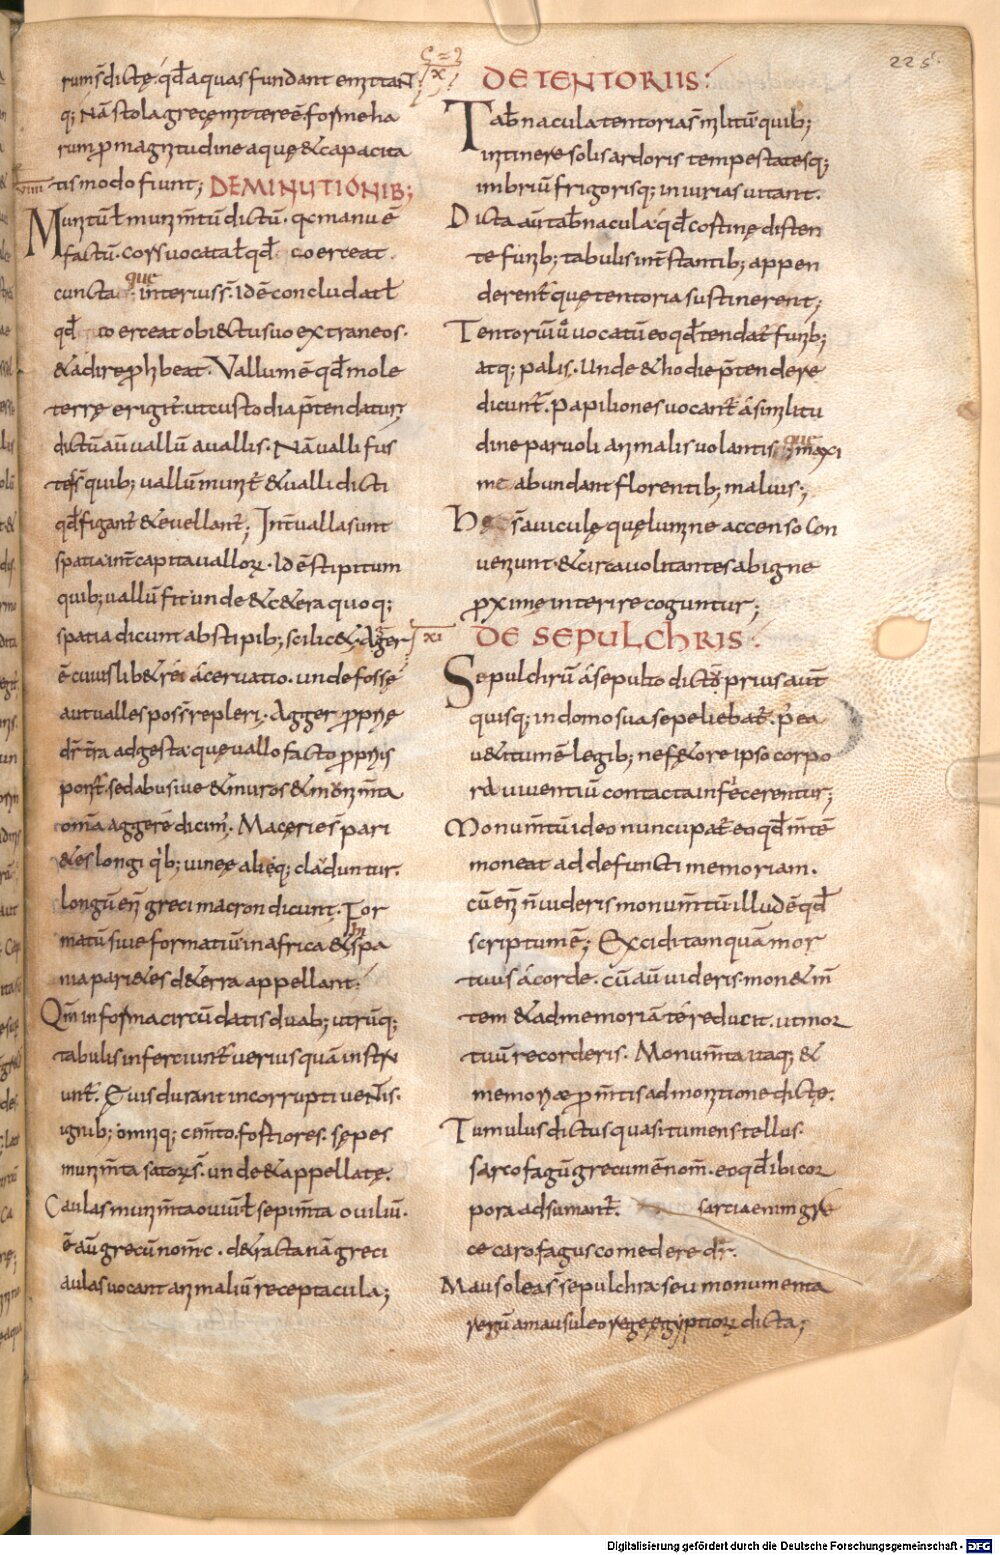 225
rum s̄ dictę. qđ aquas fundant emittant
q; Nā stola grece mittere ē. forme ha
rum ꝓ magnitudine aquę & capacita
VIIII
tis modo fiunt; DE MUNITIONIB;
Munitū ł munim̄tū dictū. qc manu ē
factū. Cors vocata ł qđ coerceat
cuncta que interius s̄. Idē concludat ł
qđ coerceat obiectu suo extraneos.
& adire ꝓhibeat. Vallum ē qđ mole
terrę erigit̄. ut custodia p̄tendatur
dictū aū vallū a vallis. Nā valli fus
tes s̄ quib; vallū munit̄ & valli dicti
qđ figant̄ & evellant̄; Int̄ualla sunt
spatia int̄ capita vallorꝝ. Id ē stipitum
quib; vallū fit unde & c&era quoq;
spatia dicunt a bstipib; scilic&. Agger
ē cuiuslib& rei acervatio. unde fossę
aut valles poss̄ repleri. Agger ꝓprię
dr̄ t̄ra adgesta. quę vallo facto ꝓpius
ponit̄. sed abusive & muros & munim̄ta
om̄a aggerē dicim̄. Maceries pari
&es longi q̇b; vineę alięq; claduntur.
longū enī greci macron dicunt. For
matū sive formatiū in africa & in spa
nia pari&es d& erra appellant.
Qm̄ in forma circūdatis duab; utrūq;
tabulis inferciunt̄ verius quā instru
unt̄. Quis durant incorrupti ventis.
ignib; omniq; cem̄to. fortiores. sępes
munim̄ta sators̄. unde & appellatę.
Caulas munim̄ta ouiū ł sepim̄ta ouiliū.
ē aū grecū nom̄ c. detracta nā greci
aulas vocant animaliū receptacula;
X
DE TENTORIIS:
Tab̄nacula tentoria s̄ militū quib;
in itinere solis ardoris tempestatesq;
imbriū frigorisq; iniurias vitant.
Dicta aū tab̄nacula. qđ cortinę disten
te funib; tabulis int̄stantib; appen
derent̄ quę tentoria sustinerent;
Tentoriū ů vocatū eo qđ tendat̄ funib;
atq; palis. Unde & hodie p̄tendere
dicunt̄. Papiliones vocant̄ á similitu
dine parvoli animalis volantis. que maxi
me abundant florentib; malvis;
Hę s̄ auiculę quę lumine accenso con
veniunt. & circa volitantes ab igne
ꝓximę interire coguntur;
XI
DE SEPULCHRIS:
Sepulchrū á sepulto dictū. prius aūt
quisq; in domo sua sepeliebat̄. p̄ea
v&itum ē legib; ne f&ore ipso corpo
ra viventiū contacta infecerentur;
Monum̄tū ideo nuncupat̄ eo qđ m̄tē
moneat ad defuncti memoriam.
cū enī n̄ videris monum̄tū illud ē qđ
scriptum ē; Excidi tamquā mor
tuus á corde. cū aū videris. mon& m̄
tem & ad memoriā té reducit. ut mor
tuū recorderis. Monum̄ta itaq; &
memoriæ ꝓ m̄tis admonitione dictę.
Tumulus dictus quasi tumens tellus.
sarcofagū grecum ē nom̄. eo qđ ibi cor
pora adsumant̄. sarcia enim gre
ce caro. fagus comedere dr̄.
Mausolea s̄ sepulchra. seu monumenta
regū a mausuleo rege ęgyptiorꝝ dicta;
Digitalisierung gefördert durch die Deutsche Forschungsgemeinschaft - DFG